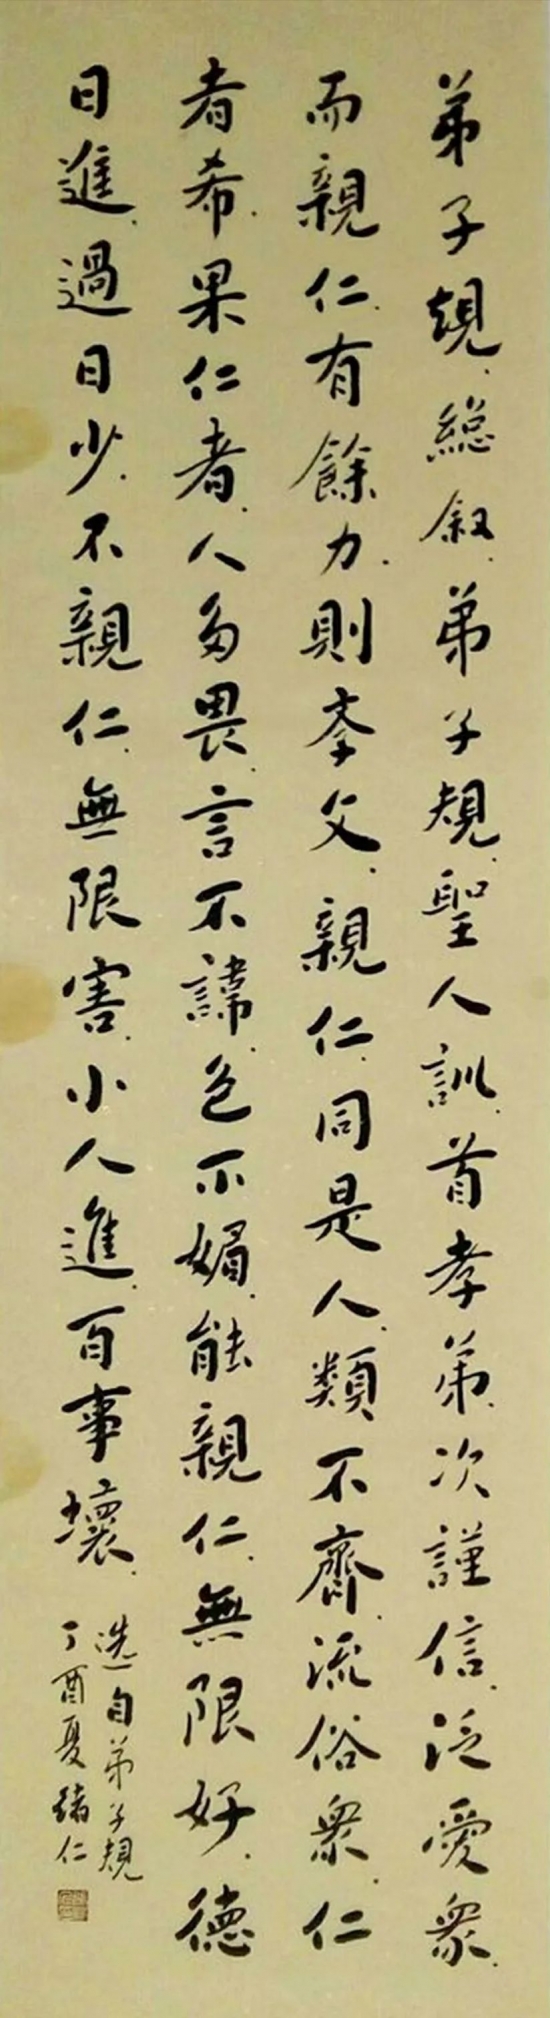 弟子規總叙弟子規聖人訓首孝弟次謹信泛愛衆
而親仁有餘力則孝父親仁同是人類不齊流俗衆仁
者希果仁者人多畏言不諱色不媚能親仁無限好德
日進過日少不親仁無限害小人進百事壞
选自弟子規
丁酉夏緒仁